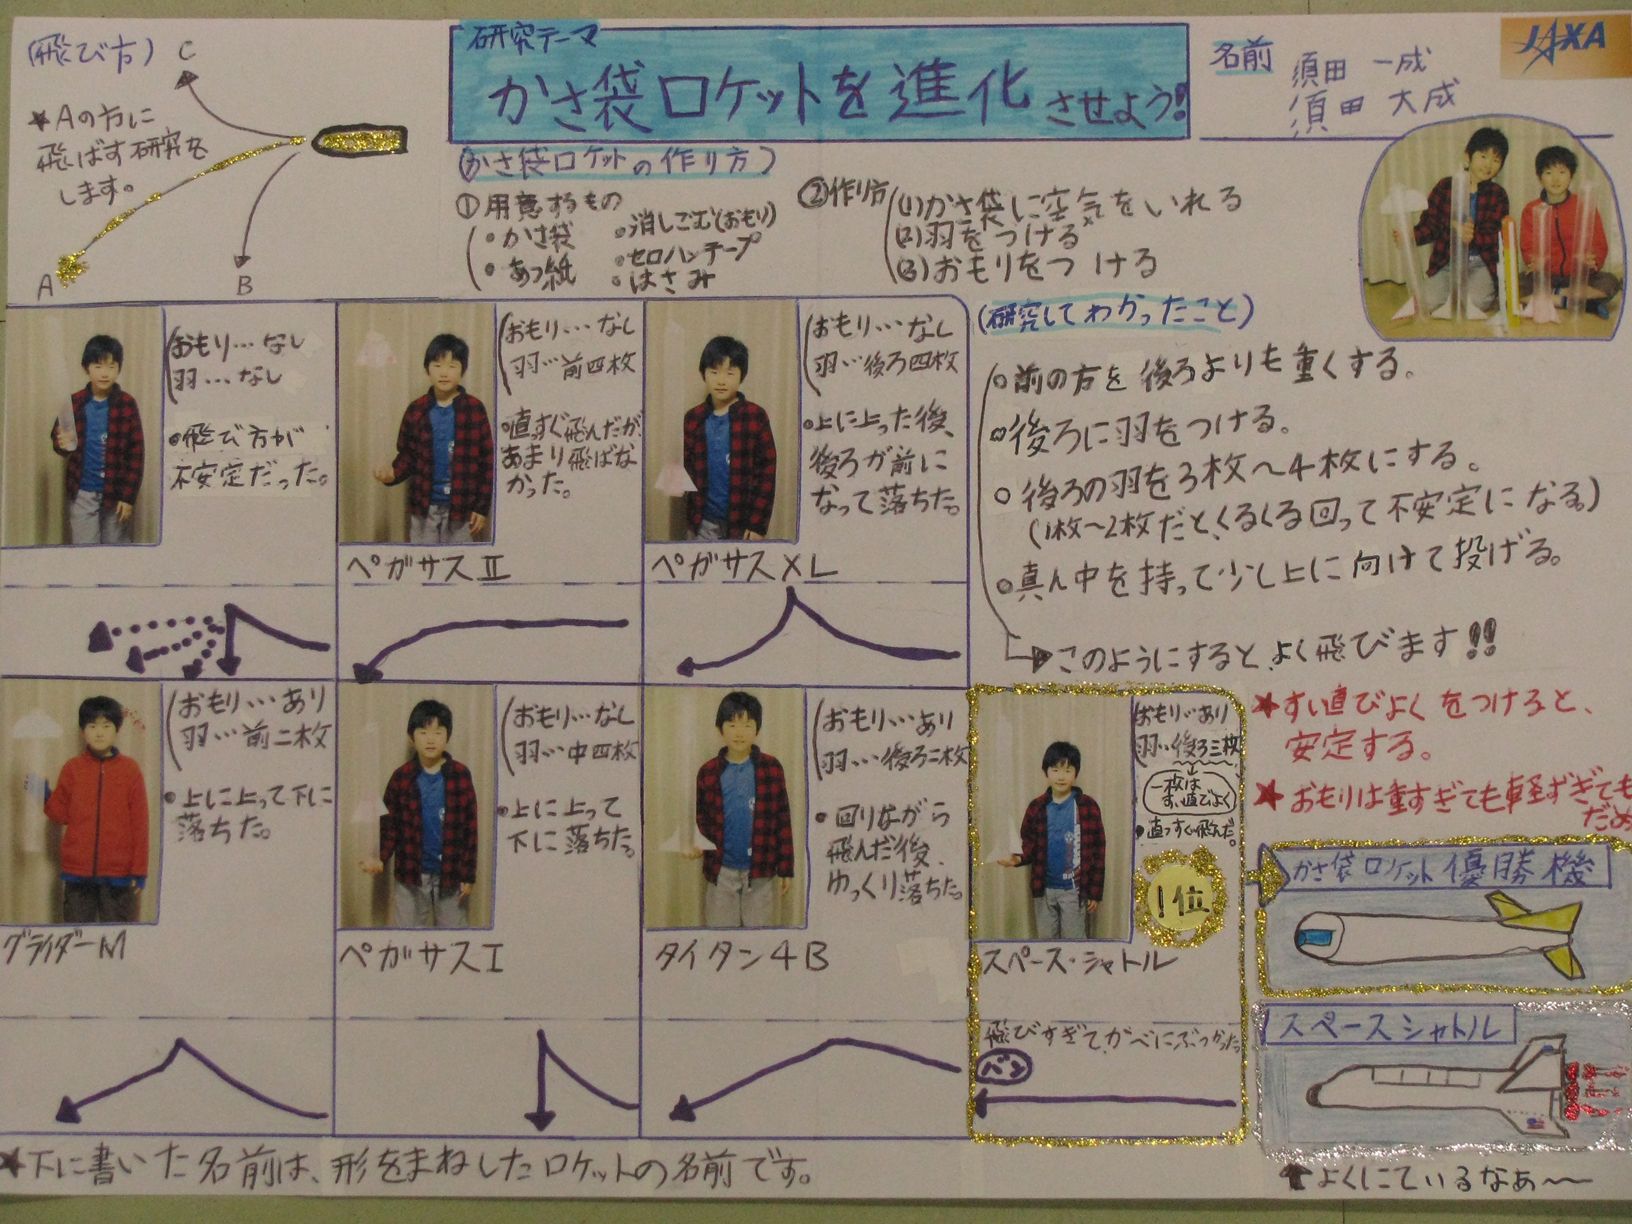 (飛び方)
C
★Aの方に
飛ばす研究を
します。
A
B
研究テーマ
かさ袋ロケットを進化させよう!
名前
須田 一成
須田 大成
JAXA
(かさ袋ロケットの作り方)
①用意するもの
・かさ袋
・あつ紙
・消しごむ(おもり)
・セロハンテープ
・はさみ
②作り方
(1)かさ袋に空気をいれる
(2)羽をつける
(3)おもりをつける
おもり…なし
羽…なし
・飛び方が
不安定だった。
おもり…なし
羽…前四枚
・直っすぐ飛んだが、
あまり飛ばな
かった。
ペガサスⅡ
おもり…なし
羽…後ろ四枚
・上に上った後、
後ろが前に
なって落ちた。
ペガサスXL
(研究してわかったこと)
○前の方を後ろよりも重くする。
○後ろに羽をつける。
○後ろの羽を3枚〜4枚にする。
(1枚〜2枚だと、くるくる回って不安定になる。)
○真ん中を持って少し上に向けて投げる。
このようにすると、よく飛びます!!
おもり…あり
羽…前二枚
・上に上って下に
落ちた。
グライダーM
おもり…なし
羽…中四枚
・上に上って
下に落ちた。
ペガサスⅠ
おもり…あり
羽…後ろ二枚
・回りながら
飛んだ後、
ゆっくり落ちた。
タイタン4B
おもり…あり
羽…後ろ三枚
一枚は
すい直びよく
・直っすぐ飛んだ。
1位
スペース・シャトル
飛びすぎて、かべにぶつかった。
バン
★すい直びよくをつけると、
安定する。
★おもりは重すぎても軽すぎても
だめ
かさ袋ロケット優勝機
スペースシャトル
★下に書いた名前は、形をまねしたロケットの名前です。
よくにているなぁ〜